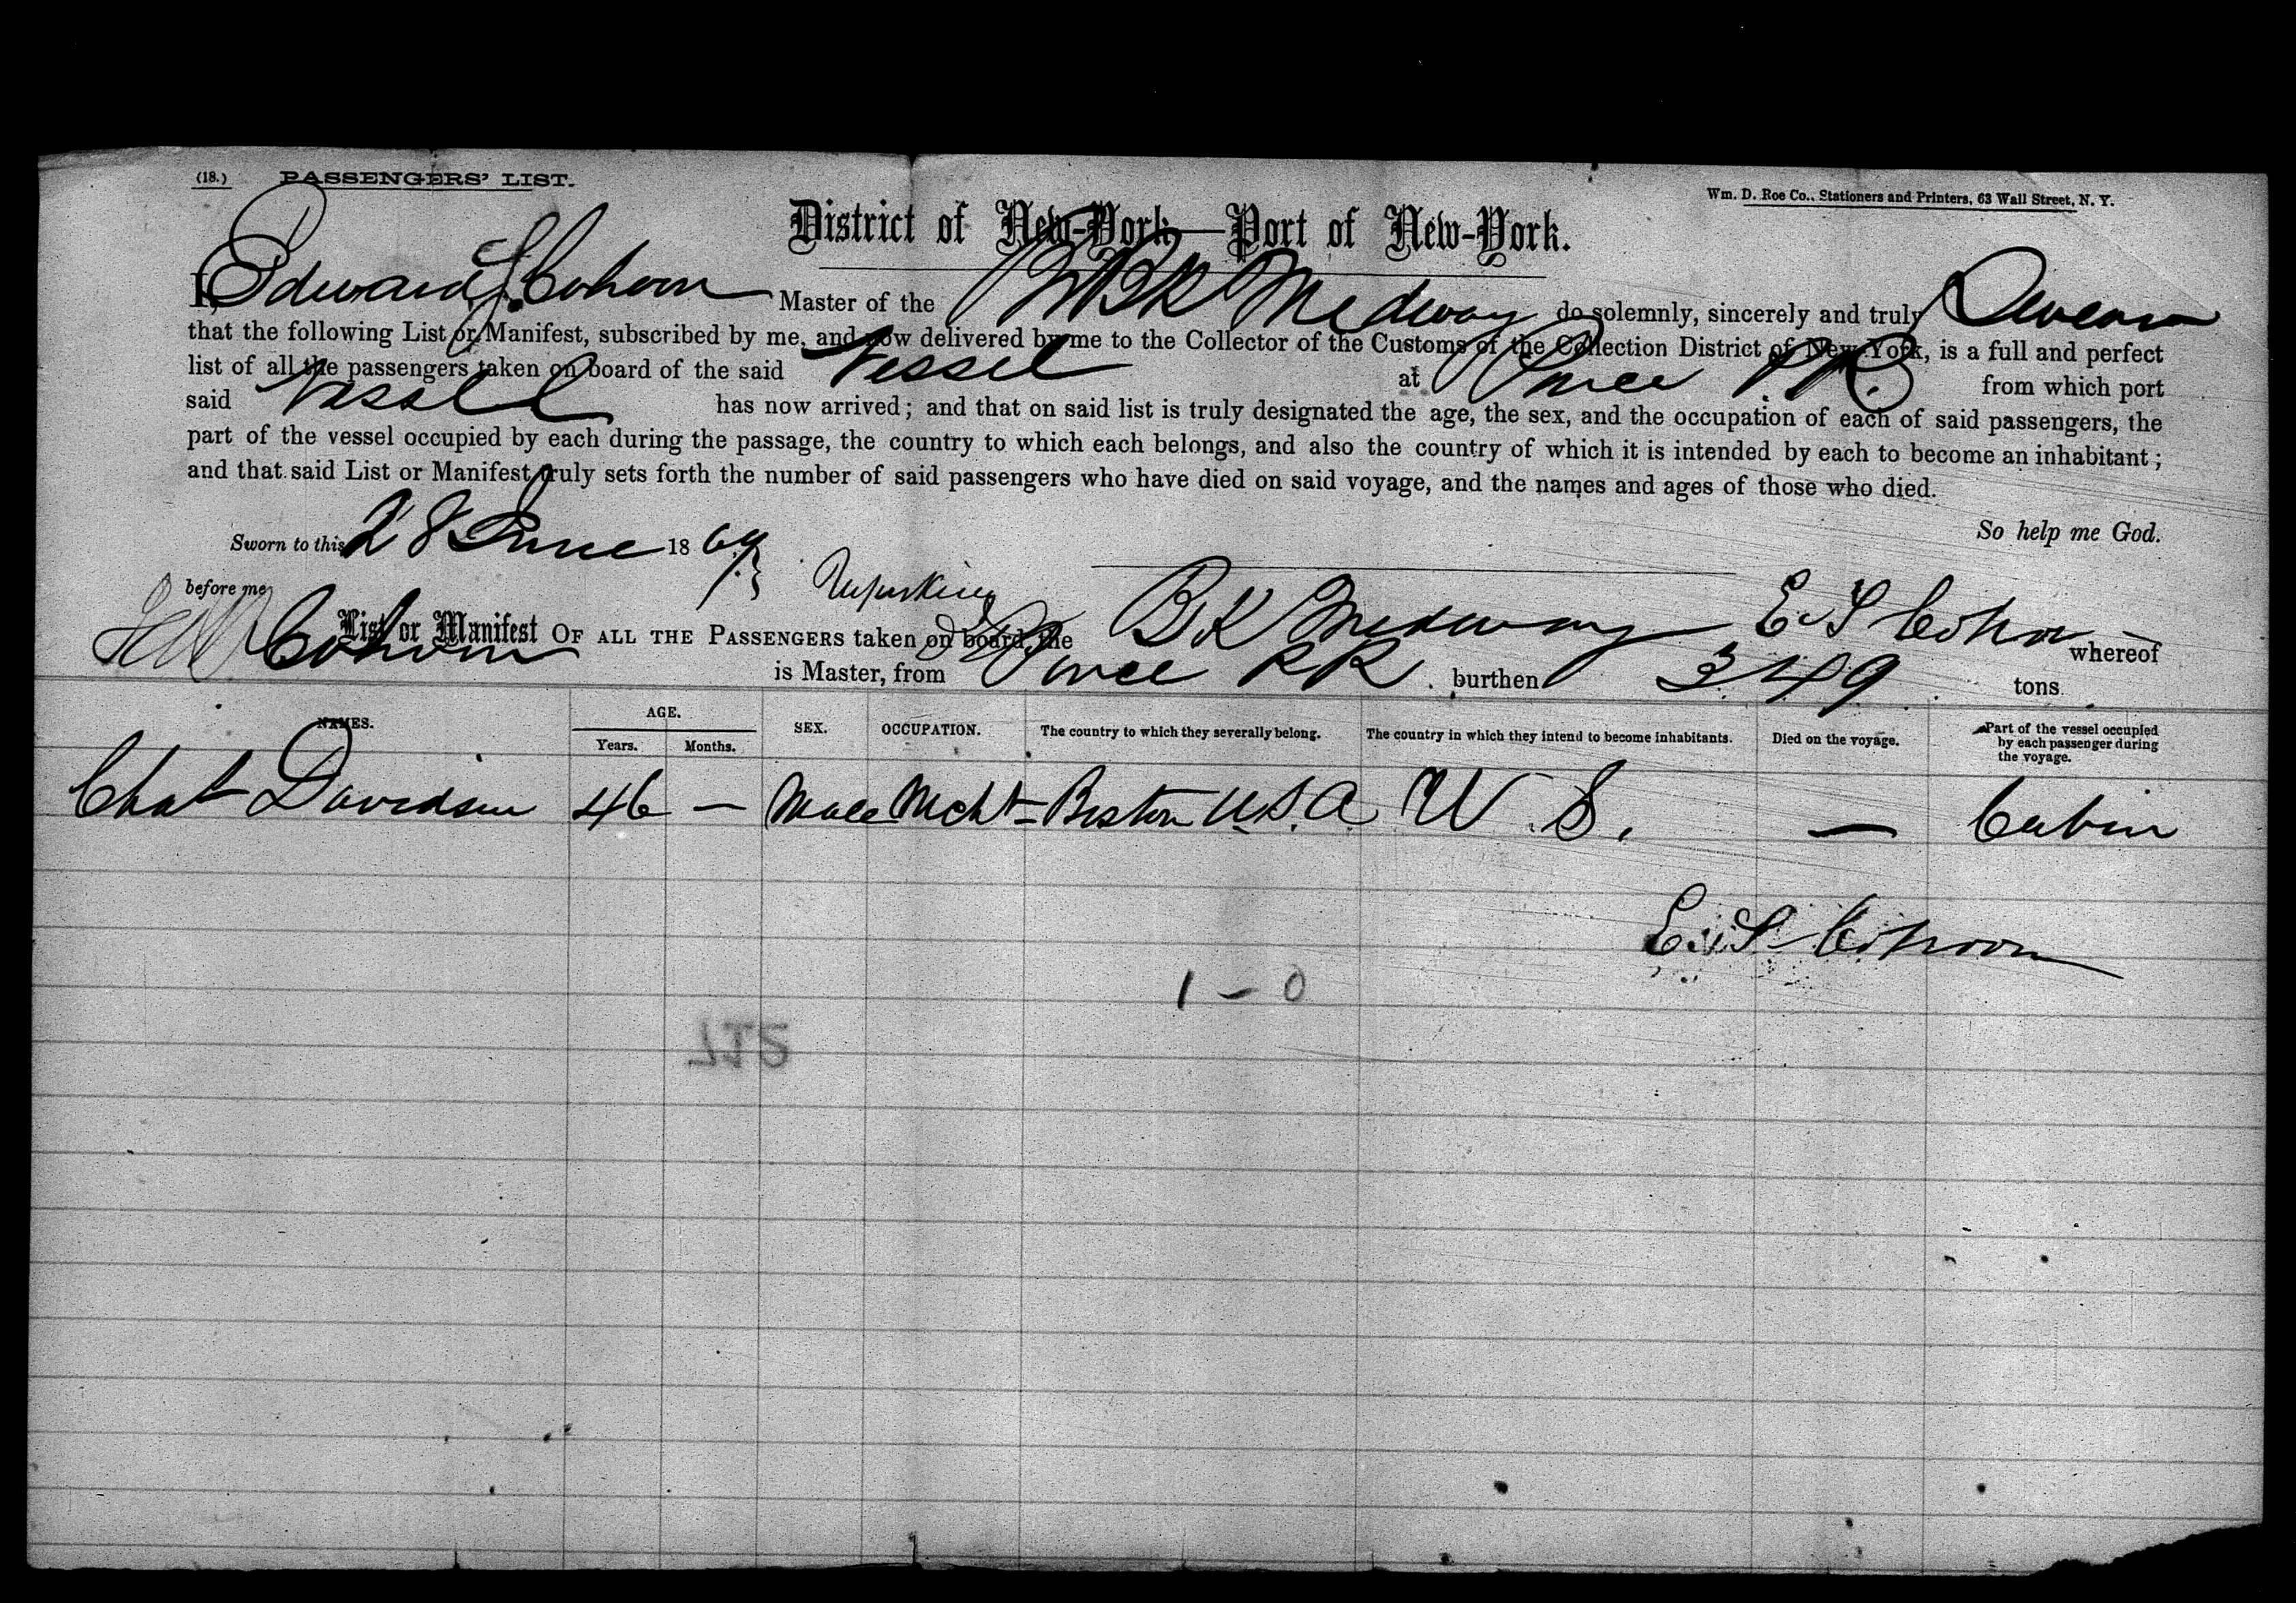 (18.) PASSENGERS' LIST.
Wm. D. Roe Co., Stationers and Printers, 63 Wall Street, N. Y.
District of New-York—Port of New-York.
I, Edward S. Cohoon Master of the Bk Medway do solemnly, sincerely and truly Swear
that the following List or Manifest, subscribed by me, and now delivered by me to the Collector of the Customs of the Collection District of New York, is a full and perfect
list of all the passengers taken on board of the said Vessel at Ponce P.R. from which port
said Vessel has now arrived; and that on said list is truly designated the age, the sex, and the occupation of each of said passengers, the
part of the vessel occupied by each during the passage, the country to which each belongs, and also the country of which it is intended by each to become an inhabitant;
and that said List or Manifest truly sets forth the number of said passengers who have died on said voyage, and the names and ages of those who died.
So help me God.
Sworn to this 28 June 1869
before me
Cohoon
List or Manifest OF ALL THE PASSENGERS taken on board the Bk Medway E. S Cohoon whereof
is Master, from Ponce P R burthen 349 tons.
NAMES. AGE. Years. Months. SEX. OCCUPATION. The country to which they severally belong. The country in which they intend to become inhabitants. Died on the voyage. Part of the vessel occupied by each passenger during the voyage.
Davidson 46 — Male Mcht Boston U.S.A. U.S. — Cabin
E. S Cohoon
1 – 0